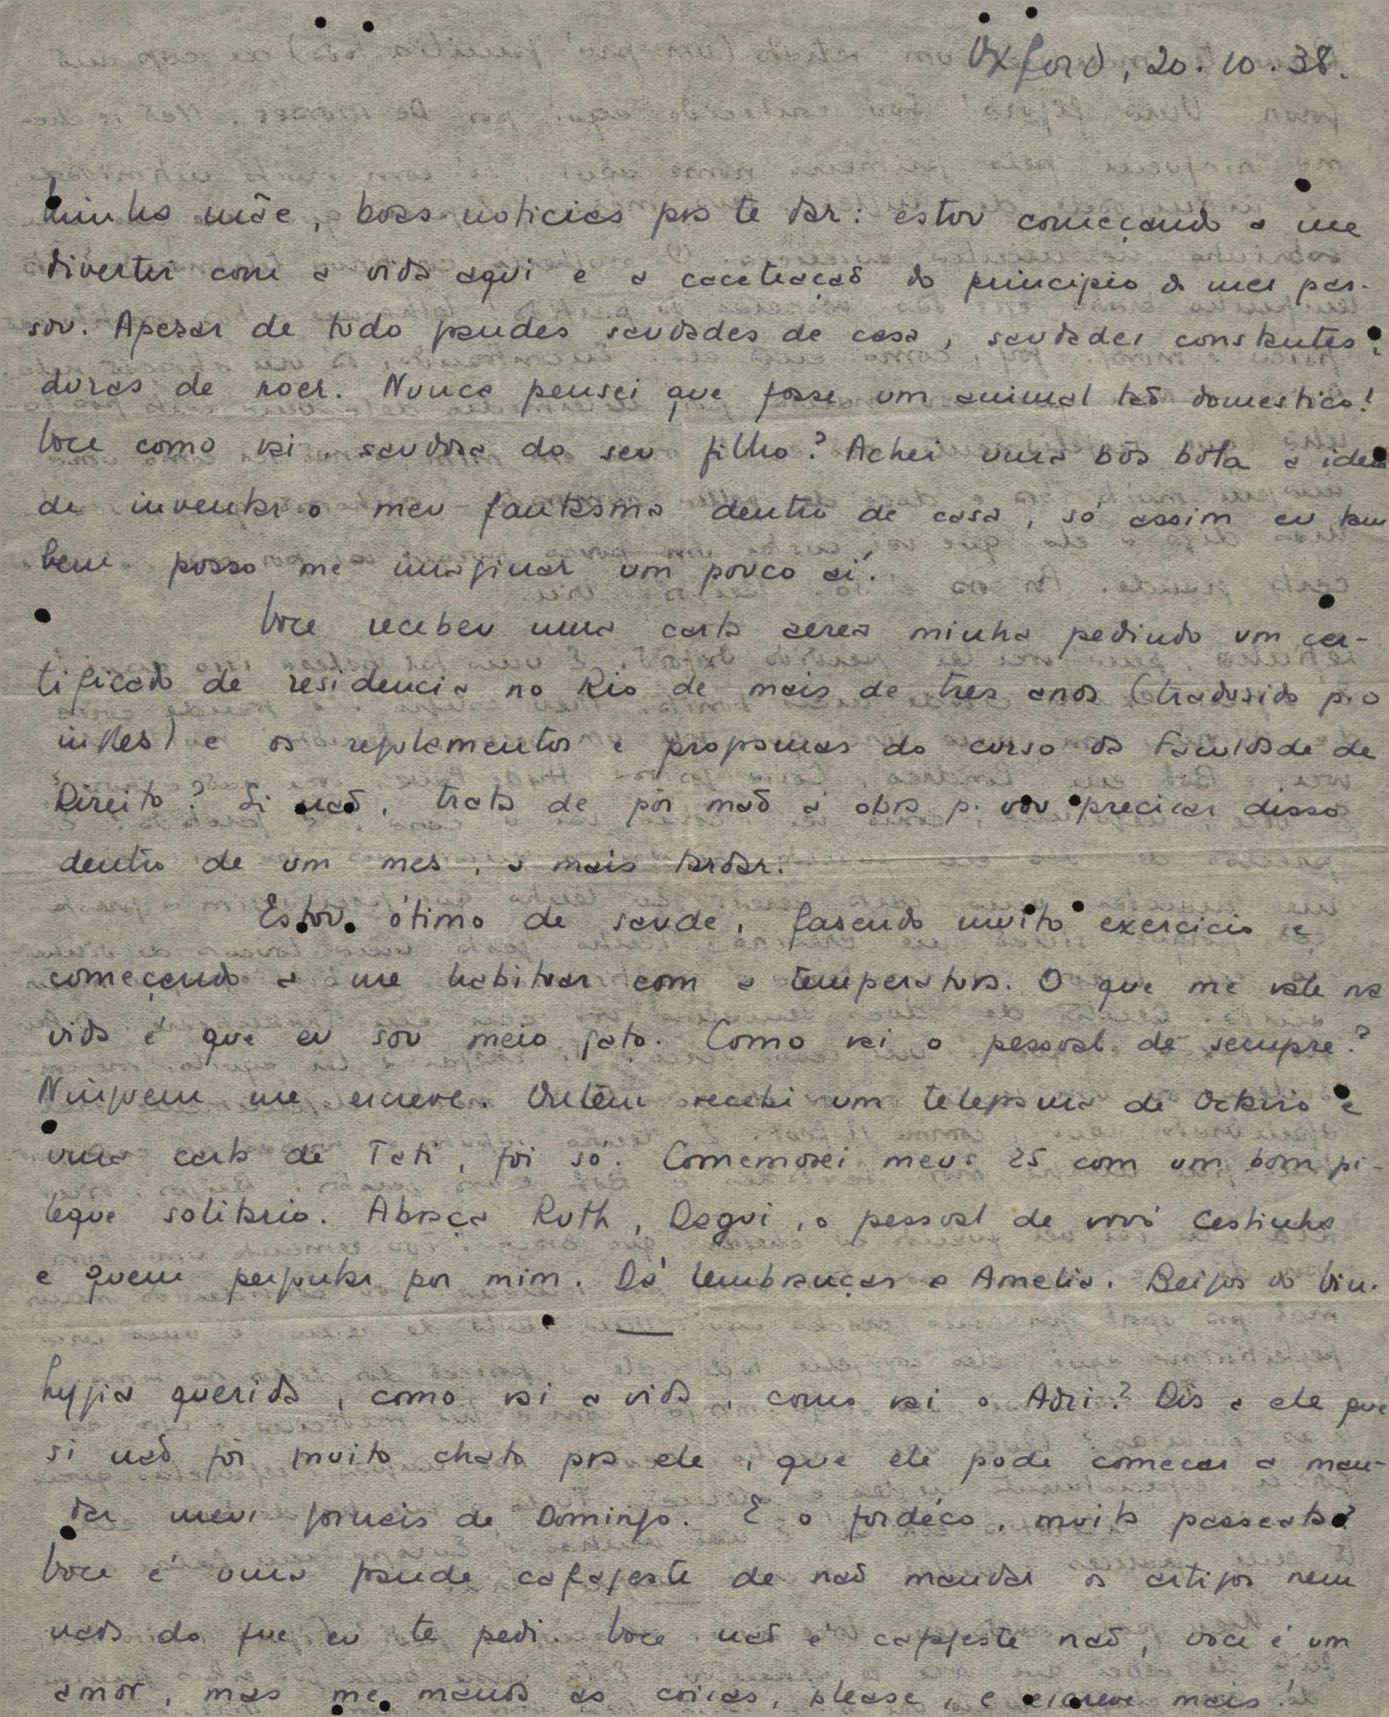 Oxford, 20.10.38.
Minha mãe, boas noticias pra te dar: estou começando a me
divertir com a vida aqui e a caceteação do principio do mes pas-
sou. Apesar de tudo grandes saudades de casa, saudades constantes,
duras de roer. Nunca pensei que fosse um animal tão domestico!
Voce como vai, saudosa do seu filho? Achei uma bôa bóla a idea
de inventar o meu fantasma dentro de casa, só assim eu tam
bem posso me imaginar um pouco aí.
Voce recebeu uma carta aerea minha pedindo um cer-
tificado de residencia no Rio de mais de tres anos (tradusido p. o
ingles) e os regulamentos e programas do curso da Faculdade de
Direito? Si não, trata de pôr mão á obra p. vou precisar disso
dentro de um mes, a mais tardar.
Estou ótimo de saude, fasendo muito exercicio e
começando a me habituar com a temperatura. O que me vale na
vida é que eu sou meio gato. Como vai o pessoal de sempre?
Ninguem me escreve. Ontem recebi um telegrama de Octavio e
uma carta de Tati, foi só. Comemorei meus 25 com um bom pi-
leque solitario. Abraça Ruth, Dagui, o pessoal de vovó Cestinha
e quem perguntar por mim. Dá lembranças a Amelia. Beijos do Vin.
Lygia querida, como vai a vida, como vai o Adri? Dis a ele que
si não fôr muito chato pra ele, que ele pode começar a man-
dar meus jornais de Domingo. E o fordéco, muito passeata?
Voce é uma grande cafageste de não mandar os artigos nem
nada do que eu te pedi. Voce não é cafgeste não, voce é um
amor, mas me manda as coisas, please, e escreve mais!